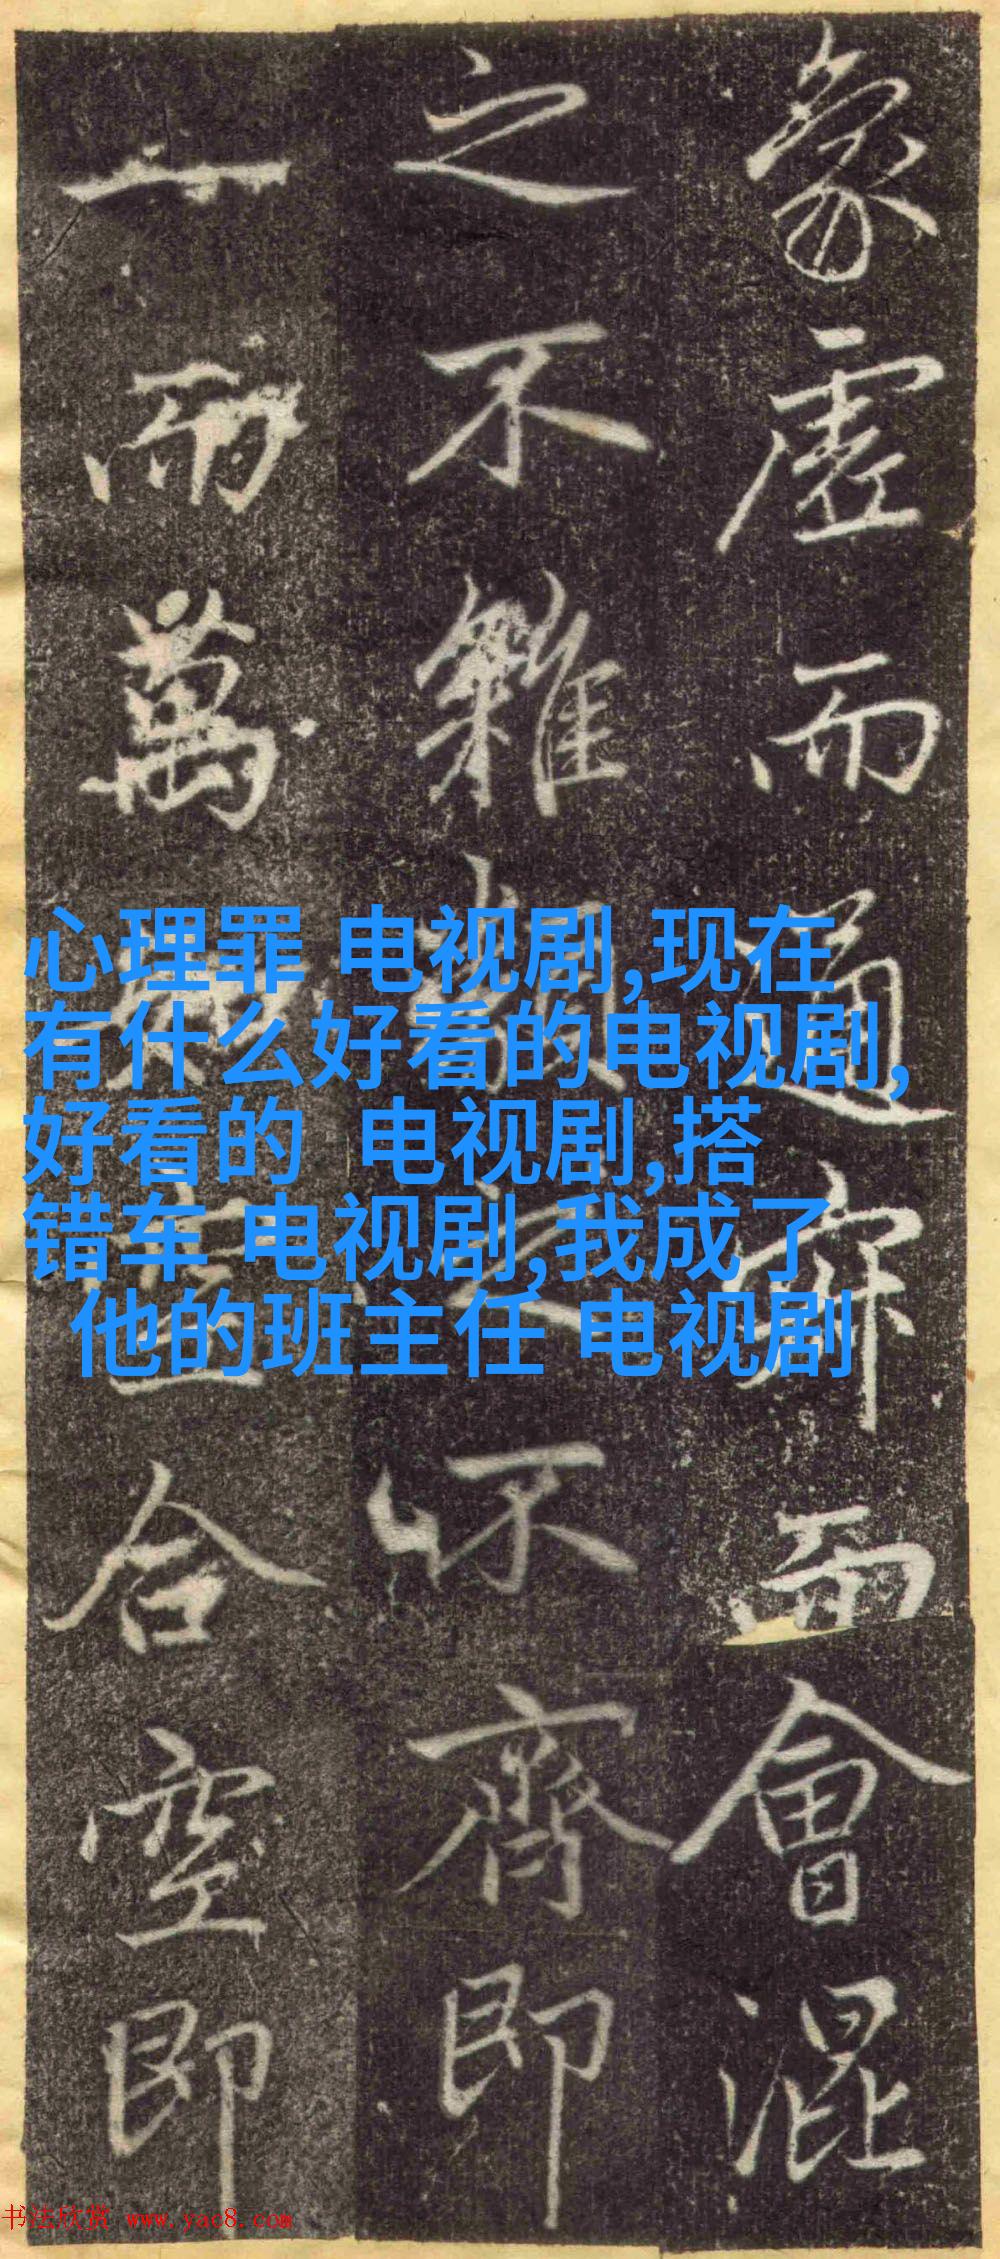 象虛而通寂而會混
之不雜類之不齊即
一而萬即
合空即
心理罪 电视剧,现在
有什么好看的电视剧,
好看的 电视剧,搭
错车 电视剧,我成了
他的班主任 电视剧
书法欣赏 www.yac8.com